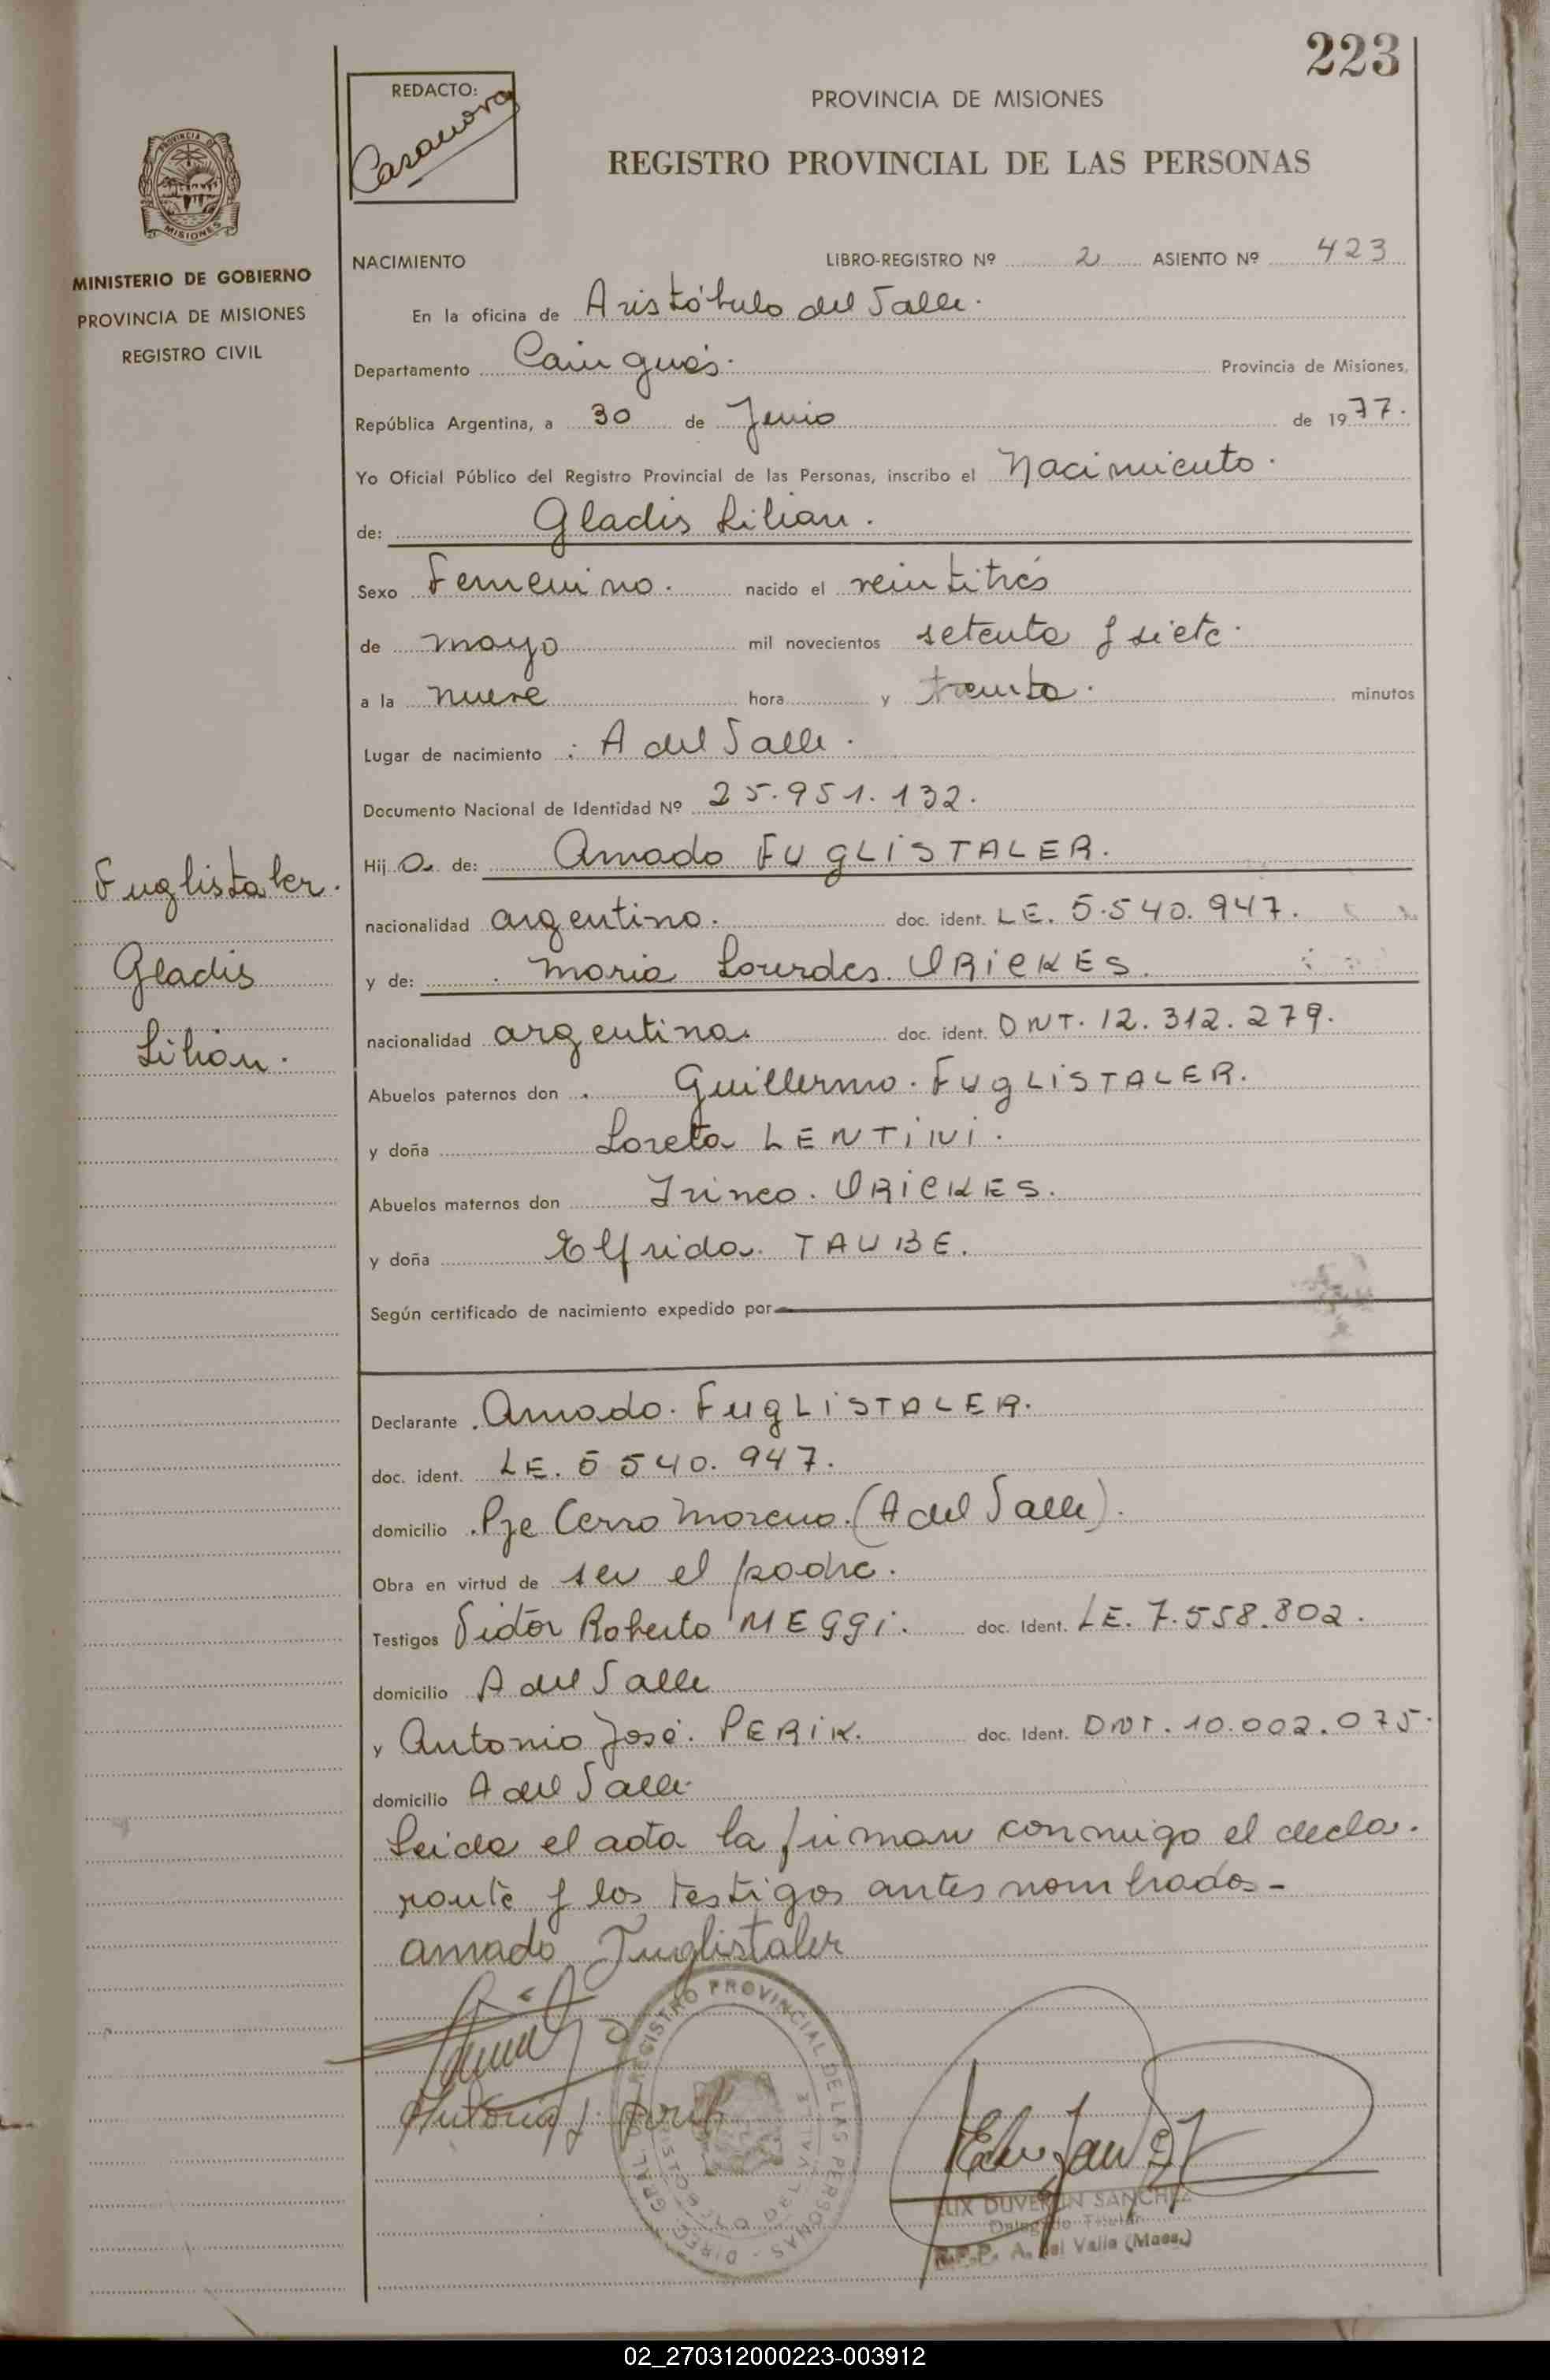 223
REDACTO:
Casanova
PROVINCIA DE MISIONES
REGISTRO PROVINCIAL DE LAS PERSONAS
PROVINCIA DE
MISIONES
MINISTERIO DE GOBIERNO
PROVINCIA DE MISIONES
REGISTRO CIVIL
NACIMIENTO LIBRO-REGISTRO Nº 2 ASIENTO Nº 423
En la oficina de Aristóbulo del Valle.
Departamento Cainguás. Provincia de Misiones,
República Argentina, a 30 de Junio de 1977.
Yo Oficial Público del Registro Provincial de las Personas, inscribo el Nacimiento.
de: Gladis Lilian.
Sexo Femenino. nacido el veintitrés
de mayo mil novecientos setenta y siete.
a la nueve hora y treinta. minutos
Lugar de nacimiento : A del Valle.
Documento Nacional de Identidad Nº 25.951.132.
Hij a. de: Amado FUGLISTALER.
nacionalidad argentino. doc. ident. LE. 5.540.947.
y de: Maria Lourdes. URICKES.
nacionalidad argentina. doc. ident. DNI. 12.312.279.
Abuelos paternos don Guillermo. FUGLISTALER.
y doña Loreta LENTINI.
Abuelos maternos don Irineo. URICKES.
y doña Elfrida. TAUBE.
Según certificado de nacimiento expedido por
Fuglistaler.
Gladis
Lilian.
Declarante Amado. FUGLISTALER.
doc. ident. LE. 5 540. 947.
domicilio Pje Cerro Moreno. (A del Valle).
Obra en virtud de ser el padre.
Testigos Victor Roberto MEGGI. doc. Ident. LE. 7.558.802.
domicilio A del Valle
y Antonio José. PERIK. doc. Ident. DNI. 10.002.075.
domicilio A del Valle.
Leida el acta la firman conmigo el decla.
rante y los testigos antes nombrados-
amado Fuglistaler
REGISTRO PROVINCIAL DE LAS PERSONAS - DIREC. GRAL.
SANCHEZ
Delegado Titular
R.P.P. A. del Valle (Mnes.)
02_270312000223-003912